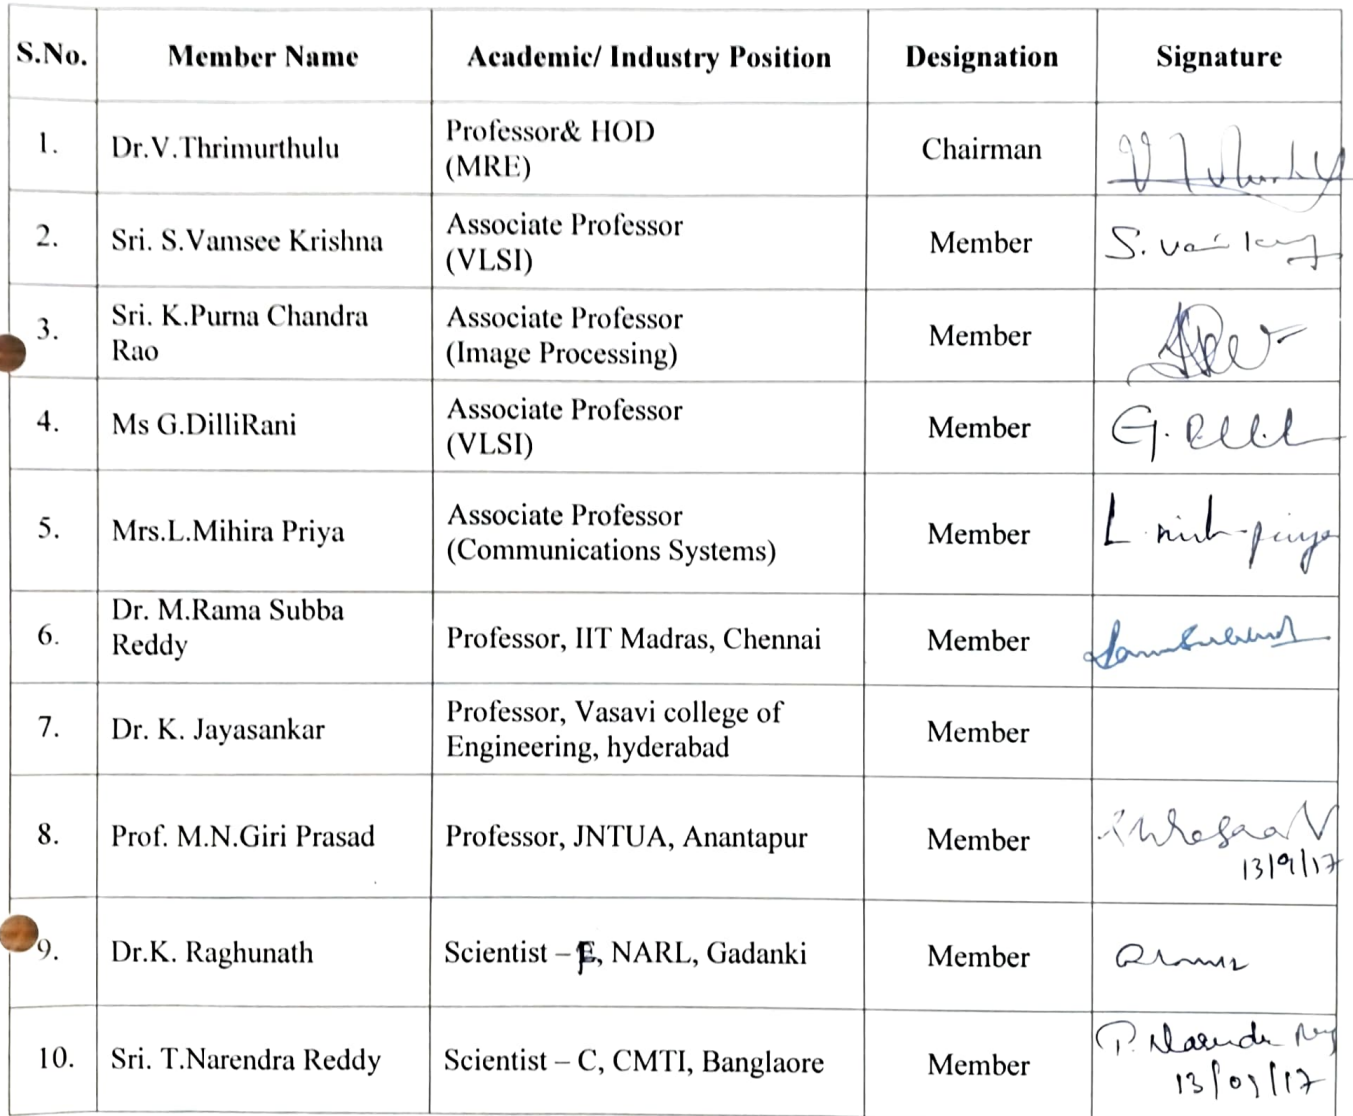 S.No. Member Name Academic/ Industry Position Designation Signature
1. Dr.V.Thrimurthulu Professor& HOD
(MRE) Chairman
2. Sri. S.Vamsee Krishna Associate Professor
(VLSI) Member S.
3. Sri. K.Purna Chandra
Rao Associate Professor
(Image Processing) Member
4. Ms G.DilliRani Associate Professor
(VLSI) Member G.
5. Mrs.L.Mihira Priya Associate Professor
(Communications Systems) Member L.
6. Dr. M.Rama Subba
Reddy Professor, IIT Madras, Chennai Member
7. Dr. K. Jayasankar Professor, Vasavi college of
Engineering, hyderabad Member
8. Prof. M.N.Giri Prasad Professor, JNTUA, Anantapur Member
13/9/17
9. Dr.K. Raghunath Scientist – , NARL, Gadanki Member
10. Sri. T.Narendra Reddy Scientist – C, CMTI, Banglaore Member
13/09/17